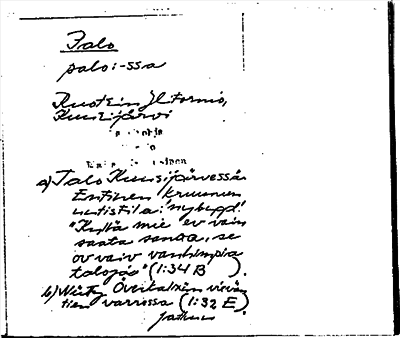 Palo
paloi-ssa
Ruotsin Ylitornio,
Kuusijärvi
a) Talo Kuusijärvessä.
Entinen kruunun
uutistila: nybygd!
"Kyllä mie en vain
saata sanoa, se
on vain vanhimpia
taloja" (1:34 B ).
b) Övertalixin
tien varressa (1:32 E).
Jatkuu